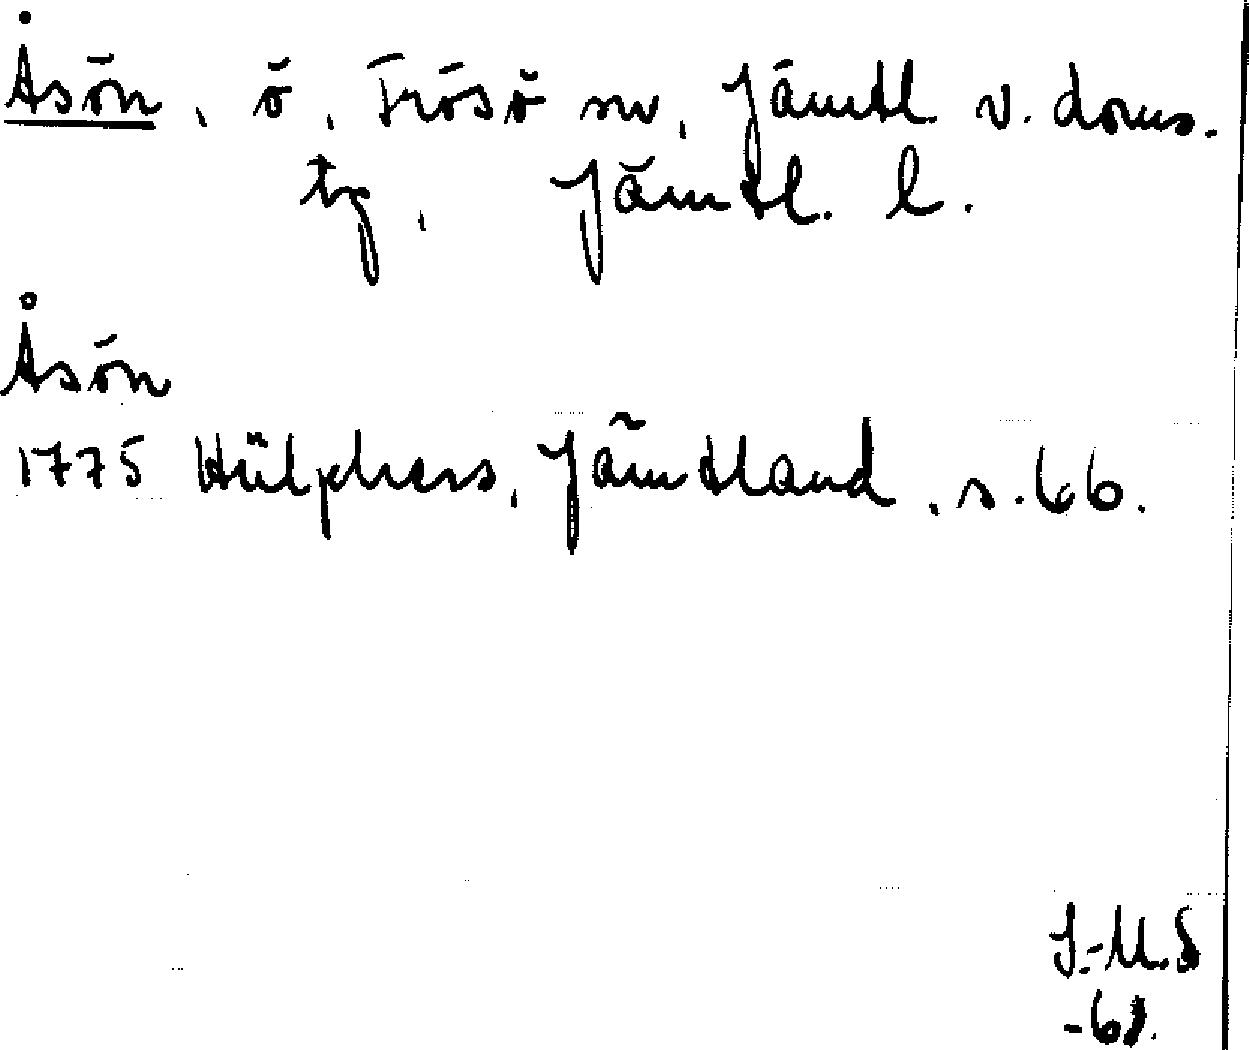 Åsön, ö, Frösö sn, Jämtl. v. doms.
tg, Jämtl. l.
Åsön
1775 Hülphers, Jämtland, s. 66.
I.-M.S